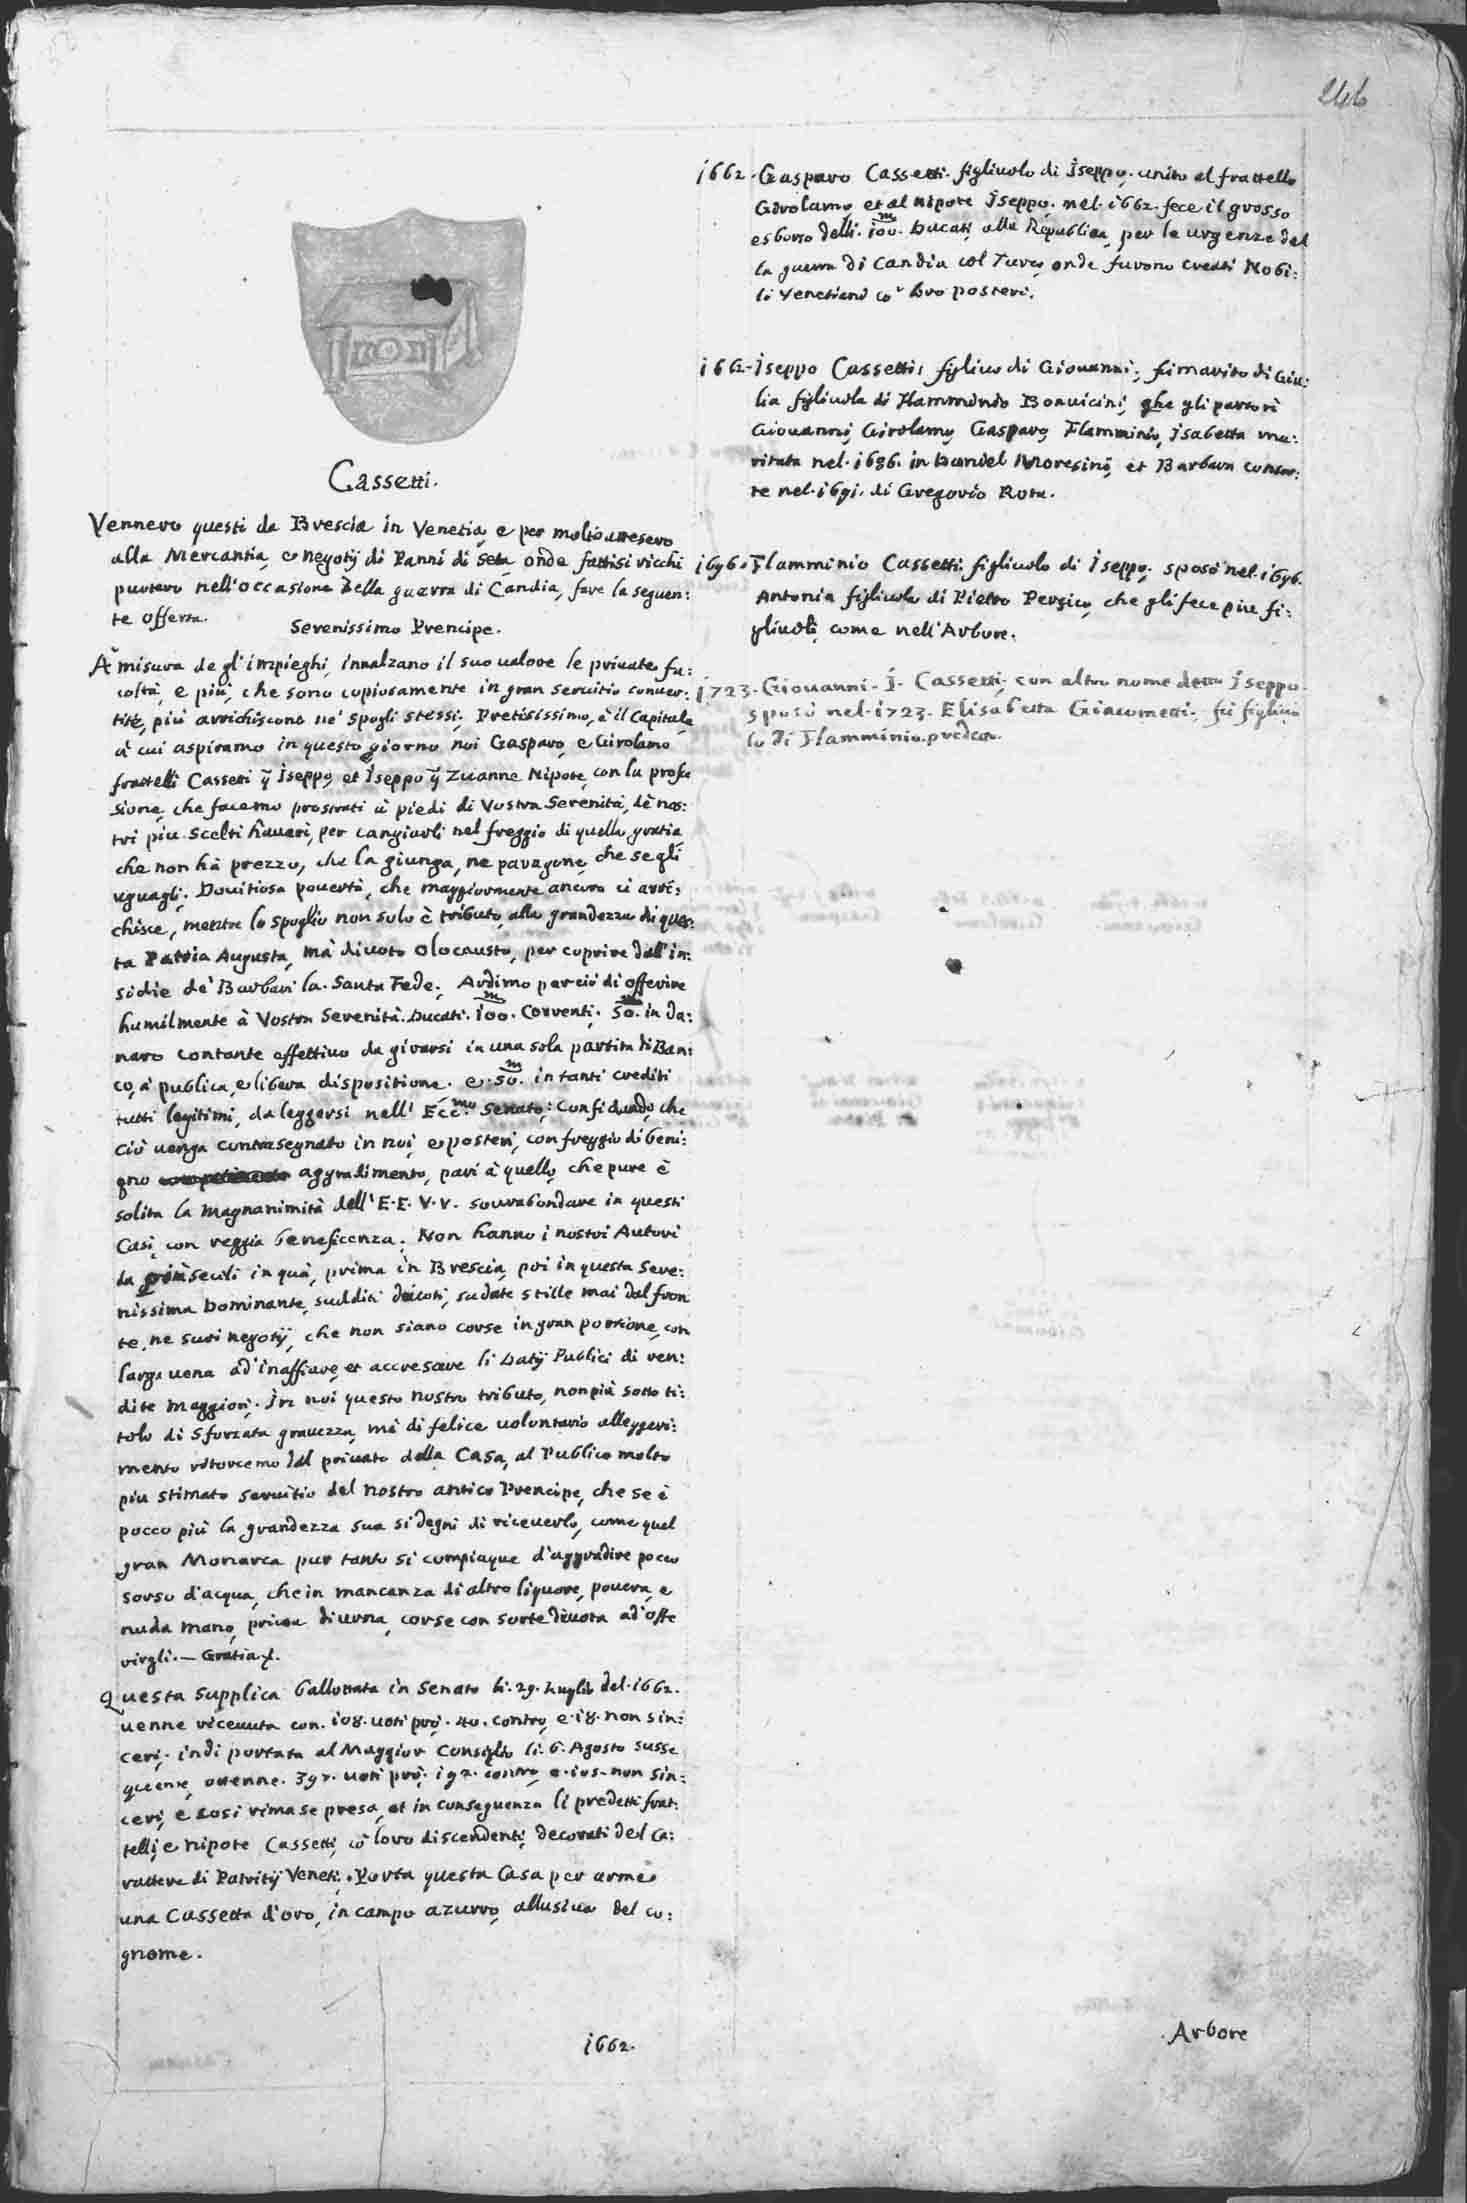 246
Cassetti.
Vennero questi da Brescia in Venetia, e per molto attesero
alla Mercantia, e negotij di Panni di seta, onde fattisi ricchi
puotero nell'occasione della guerra di Candia, fare la seguen:
te offerta.
Serenissimo Prencipe.
A misura de gl'impieghi, innalzano il suo ualore le priuate fa:
coltà, e più, che sono copiosamente in gran seruitio conuer:
tite, più arrichiscono ne' spogli stessi. Pretisissimo, è il Capitale
à cui aspiramo in questo giorno noi Gasparo, e Girolamo
fratelli Cassetti q̃ Iseppo, et Iseppo q̃ Zuanne Nipote, con la profes
sione, che facemo prostrati à piedi di Vostra Serenità, dè nos:
tri più scelti haueri, per cangiarli nel freggio di quella gratia
che non hà prezzo, che la giunga, ne paragone, che se gli
uguagli. Douitiosa pouertà, che maggiormente ancora ci arri:
chisce, mentre lo spoglio non solo è tributo, alla grandezza di ques:
ta Patria Augusta, mà diuoto olocausto, per coprire dall'in:
sidie de' Barbari la Santa Fede. Ardimo perciò di offerire
humilmente à Vostra Serenità Ducati. 100.m Correnti. 50.m in da:
naro contante effettiuo da girarsi in una sola partita di Ban:
co, à publica, e libera dispositione. e. 50.m in tanti crediti
tutti legitimi, da leggersi nell' Ecc.mo Senato: Confidando, che
ciò uenga contrasegnato in noi, e posteri, con freggio di beni:
gno aggradimento, pari à quello, che pure è
solita la Magnanimità dell' E.E. V.V. sourabondare in questi
Casi, con reggia beneficenza. Non hanno i nostri Autori
da secoli in quà, prima in Brescia, poi in questa Sere:
nissima Dominante, sudditi diuoti, sudate stille mai dal fron
te, ne suoi negotij, che non siano corse in gran portione, con
larga uena ad'inaffiare, et accrescere li Datij Publici di ren:
dite maggiori. In noi questo nostro tributo, non più sotto ti:
tolo di sforzata grauezza, mà di felice uolontario alleggeri:
mento ritorcemo dal priuato della Casa, al Publico molto
più stimato seruitio del nostro antico Prencipe, che se è
pocco più la grandezza sua si degni di riceuerlo, come quel
gran Monarca pur tanto si compiaque d'aggradire pocco
sorso d'acqua, che in mancanza di altro liquore, pouera, e
nuda mano, priua di urna, corse con sorte diuota ad'offe
rirgli. — Gratia
Questa supplica ballottata in Senato li. 29. Luglio del. 1662.
uenne riceuuta con. 108. uoti prò. 40. contro, e. 18. non sin:
ceri. indi portata al Maggior Consiglio li. 6. Agosto susse
quente, ottenne. uoti prò. 192. contro, e. 105. non sin:
ceri, e cosi rimase presa, et in conseguenza li predetti frat:
telli, e nipote Cassetti, cò loro discendenti, decorati del Ca:
rattere di Patritij Veneti. Porta questa Casa per arme
una Cassetta d'oro, in campo azurro, allusiua del co:
gnome.
1662.
1662. Gasparo Cassetti. figliuolo di Iseppo, unito al fratello
Girolamo, et al nipote Iseppo. nel. 1662. fece il grosso
esborso delli. 100.m Ducati alla Republica, per le urgenze del
la guerra di Candia col Turco, onde furono creati Nobi:
li Venetiani cò loro posteri.
1662. Iseppo Cassetti, figliuo di Giouanni, fù marito di Giu:
lia figliuola di Flamminio Bonuicini, che gli partorì
Giouanni, Girolamo, Gasparo, Flamminio, Isabetta ma:
ritata nel. 1686. in Daniel Moresini, et Barbara consor:
te nel. 1691. di Gregorio Rota.
1696. Flamminio Cassetti figliuolo di Iseppo, sposò nel. 1696.
Antonia figliuola di Pietro Persico, che gli fece più fi:
gliuoli, come nell'Arbore.
1723. Giouanni. I. Cassetti, con altro nome detto Iseppo
sposò nel. 1723. Elisabetta Giacometti. fù figliuo
lo di Flamminio predetto.
Arbore